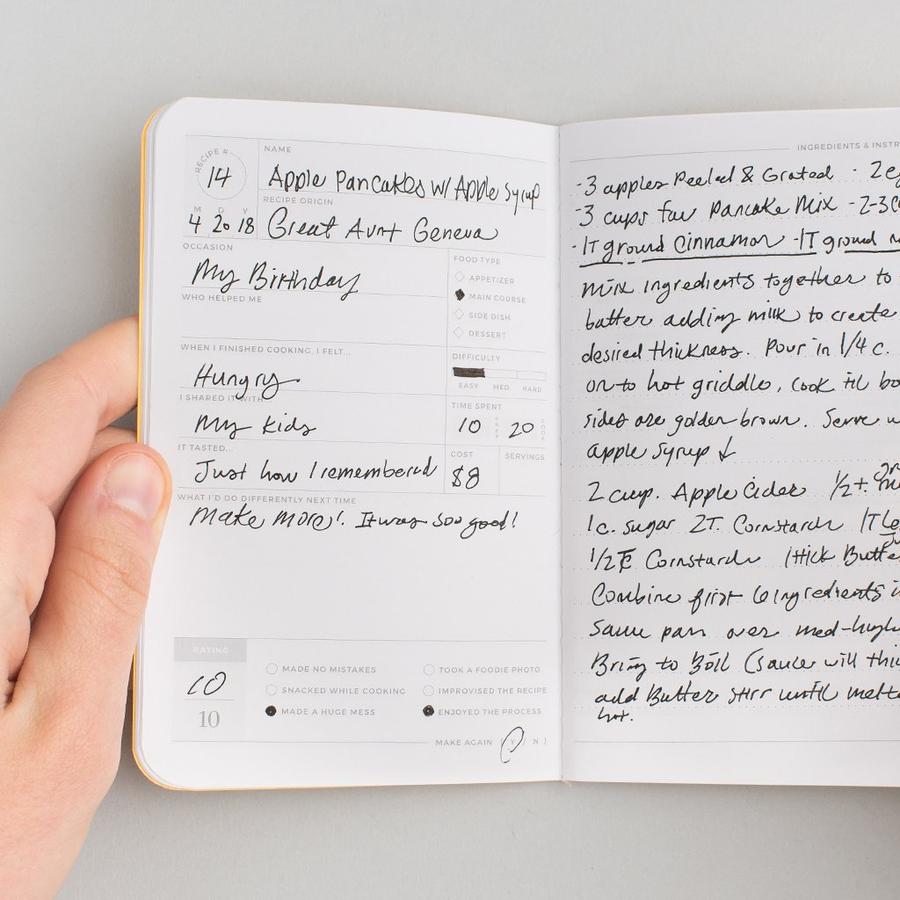 RECIPE #
14
NAME
Apple Pancakes w/ Apple Syrup
M D Y
4 20 18
RECIPE ORIGIN
Great Aunt Geneva
OCCASION
My Birthday
WHO HELPED ME
FOOD TYPE
APPETIZER
MAIN COURSE
SIDE DISH
DESSERT
WHEN I FINISHED COOKING, I FELT...
Hungry
DIFFICULTY
EASY MED HARD
I SHARED IT WITH...
My kids
TIME SPENT
10 PREP 20 COOK
IT TASTED...
Just how I remembered
COST
$8
SERVINGS
WHAT I'D DO DIFFERENTLY NEXT TIME
Make more! It was soo good!
RATING
10
10
MADE NO MISTAKES
SNACKED WHILE COOKING
MADE A HUGE MESS
TOOK A FOODIE PHOTO
IMPROVISED THE RECIPE
ENJOYED THE PROCESS
MAKE AGAIN ( Y / N )
INGREDIENTS & INSTR
- 3 apples Peeled & Grated - 2 e
- 3 cups fav Pancake Mix - 2-3
- 1T ground Cinnamon - 1T ground
Mix ingredients together to
batter adding milk to create
desired thickness. Pour in 1/4 c.
on to hot griddle, cook til bo
sides are golden brown. Serve w
apple syrup ↓
2 cup. Apple Cider 1/2 t.
1c. sugar 2T. Cornstarch 1T Le
1/2 Cornstarch 1 stick Butte
Combine first 6 ingredients i
Sauce pan over med-high
Bring to Boil (sauce will thi
add Butter stir until melt
hot.